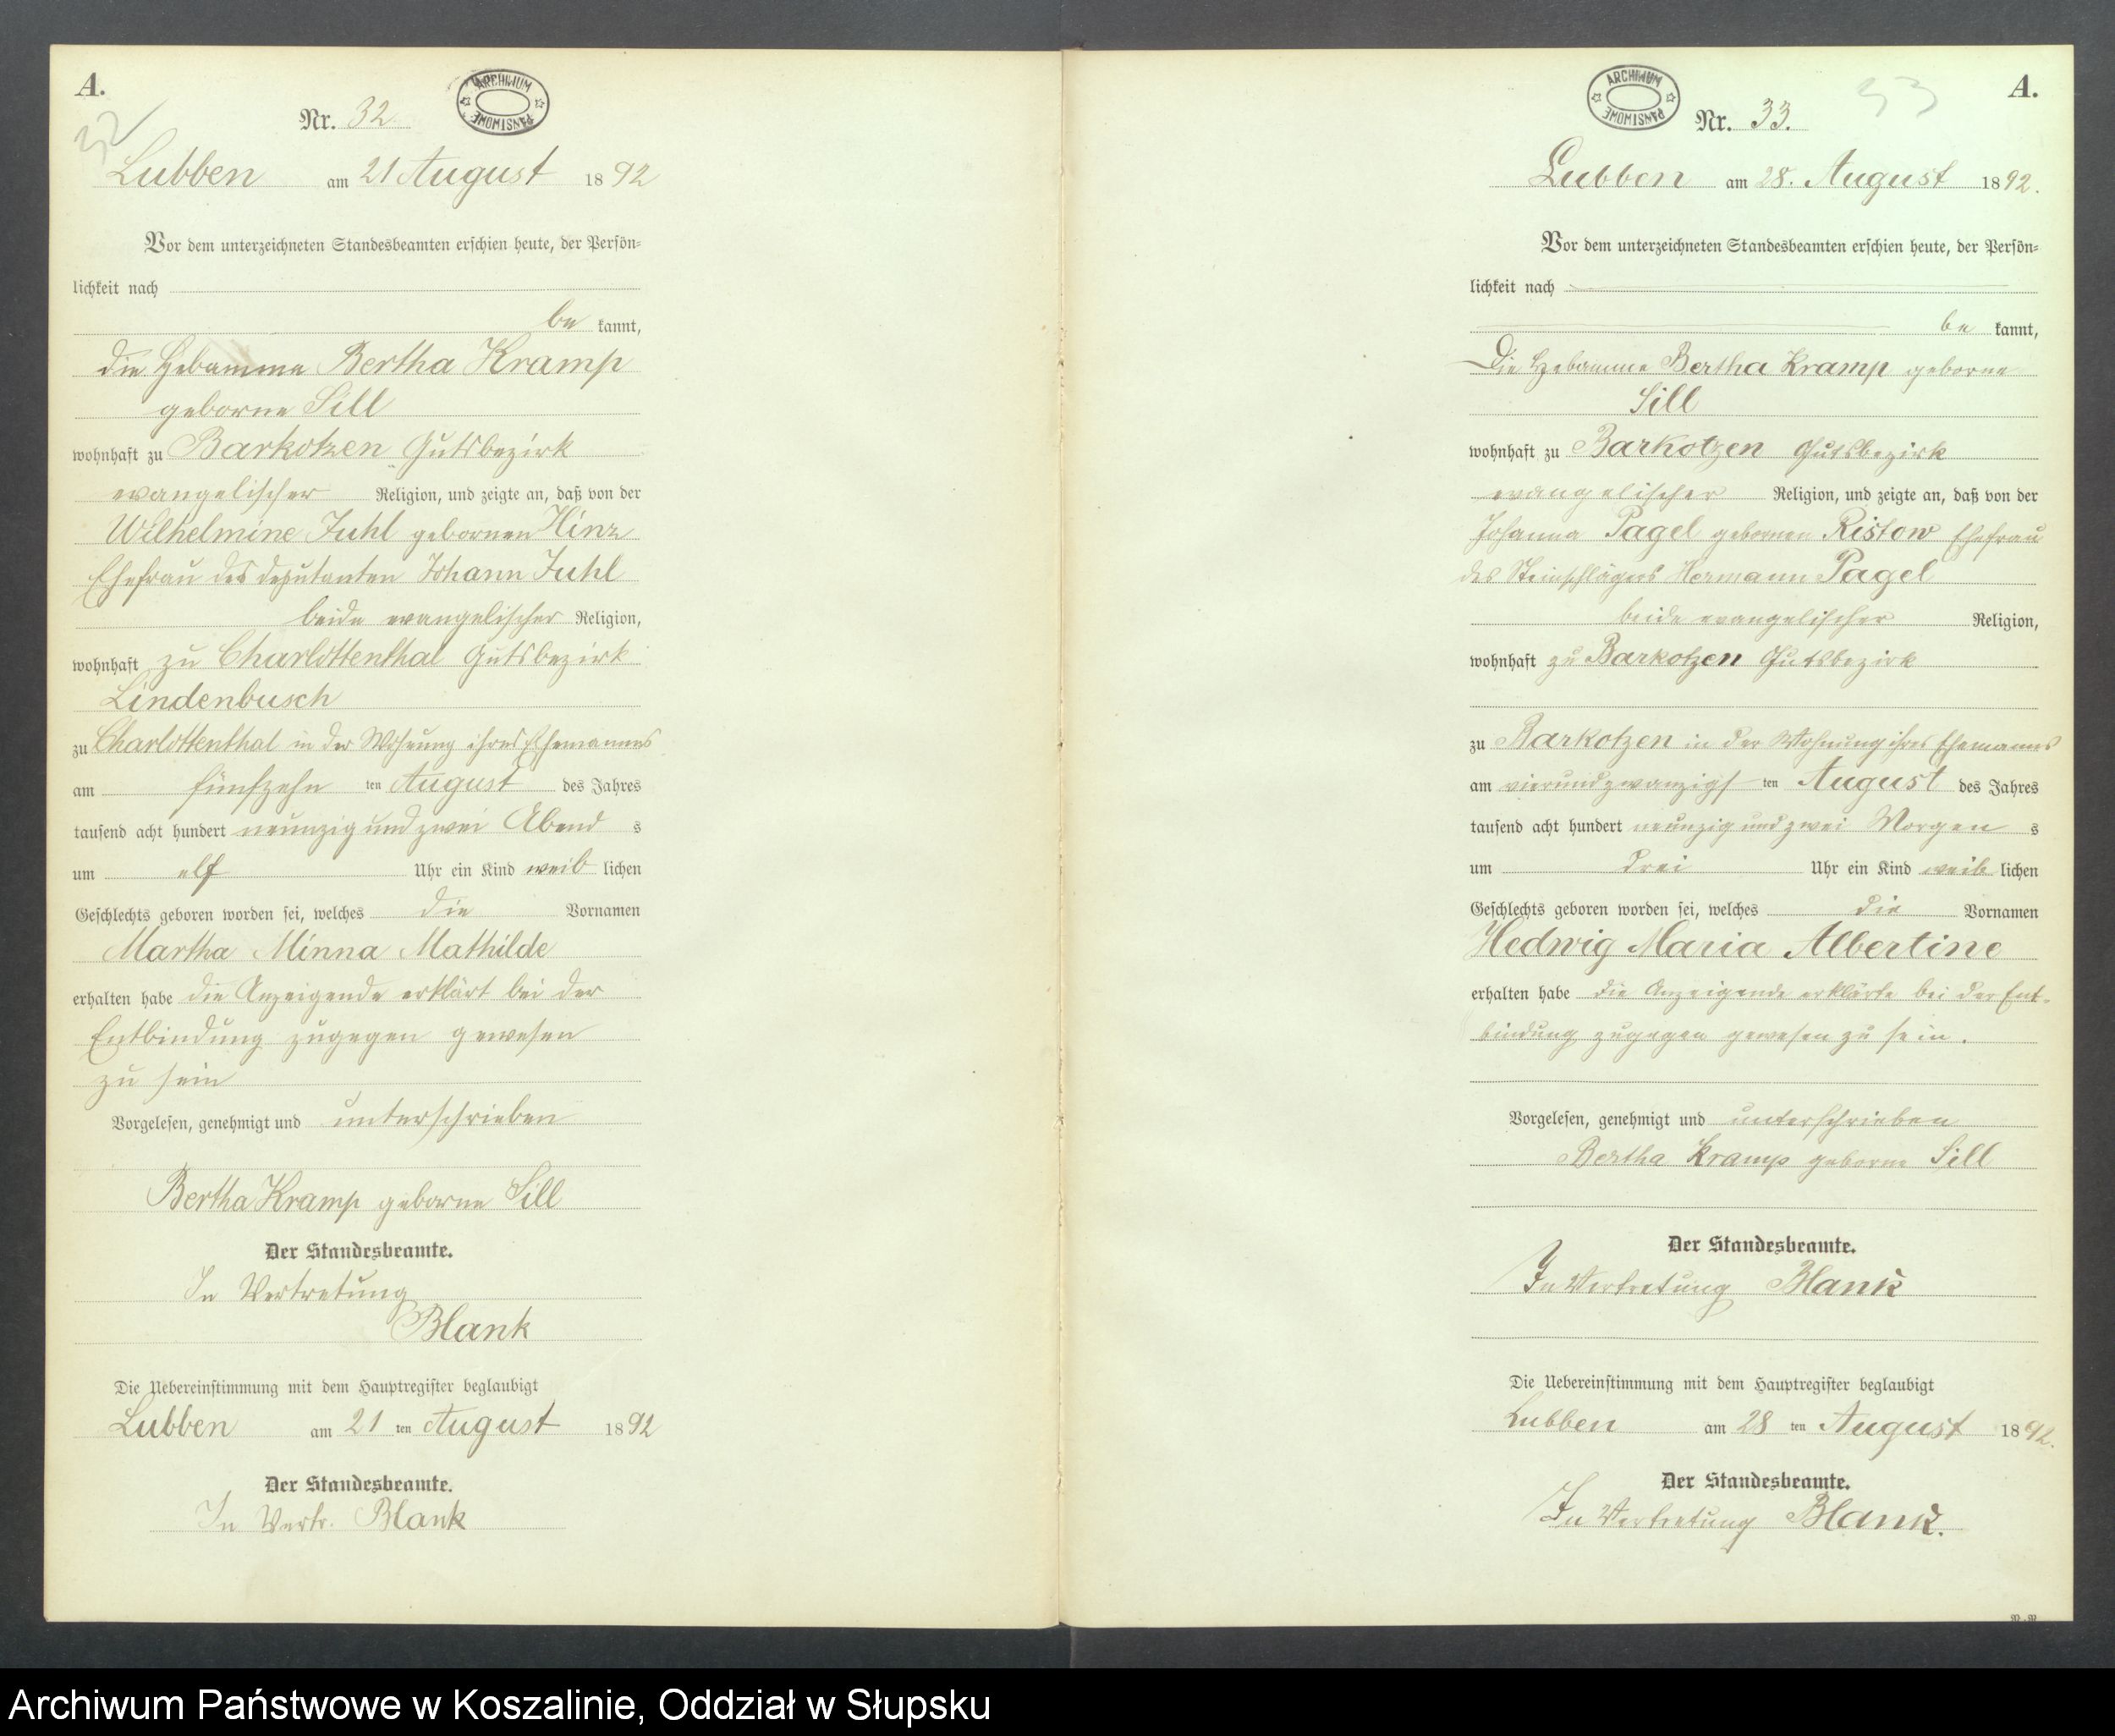 A.
32
Nr. 32.
ARCHIWUM PAŃSTWOWE
Lubben am 21 August 1892
Vor dem unterzeichneten Standesbeamten erschien heute, der Persön=
lichkeit nach
be kannt,
die Hebamme Bertha Kramp
geborne Sill
wohnhaft zu Barkotzen Gutsbezirk
evangelischer Religion, und zeigte an, daß von der
Wilhelmine Juhl gebornen Hinz
Ehefrau des deputanten Johann Juhl
beide evangelischer Religion,
wohnhaft zu Charlottenthal Gutsbezirk
Lindenbusch
zu Charlottenthal in der Wohnung ihres Ehemannes
am fünfzehn ten August des Jahres
tausend acht hundert neunzig und zwei Abend s
um elf Uhr ein Kind weib lichen
Geschlechts geboren worden sei, welches die Vornamen
Martha Minna Mathilde
erhalten habe die Anzeigende erklärt bei der
Entbindung zugegen gewesen
zu sein
Vorgelesen, genehmigt und unterschrieben
Bertha Kramp geborne Sill
Der Standesbeamte.
In Vertretung
Blank
Die Uebereinstimmung mit dem Hauptregister beglaubigt
Lubben am 21 ten August 1892
Der Standesbeamte.
In Vertr. Blank
A.
33
ARCHIWUM PAŃSTWOWE
Nr. 33.
Lubben am 28. August 1892.
Vor dem unterzeichneten Standesbeamten erschien heute, der Persön=
lichkeit nach
be kannt,
Die Hebamme Bertha Kramp geborne
Sill
wohnhaft zu Barkotzen Gutsbezirk
evangelischer Religion, und zeigte an, daß von der
Johanna Pagel gebornen Ristow Ehefrau
des Steinschlägers Hermann Pagel
beide evangelischer Religion,
wohnhaft zu Barkotzen Gutsbezirk
zu Barkotzen in der Wohnung ihres Ehemanns
am vierundzwanzigs ten August des Jahres
tausend acht hundert neunzig und zwei Morgen s
um drei Uhr ein Kind weib lichen
Geschlechts geboren worden sei, welches die Vornamen
Hedwig Maria Albertine
erhalten habe die Anzeigende erklärte bei der Ent-
bindung zugegen gewesen zu sein.
Vorgelesen, genehmigt und unterschrieben
Bertha Kramp geborne Sill
Der Standesbeamte.
In Vertretung Blank
Die Uebereinstimmung mit dem Hauptregister beglaubigt
Lubben am 28 ten August 1892.
Der Standesbeamte.
In Vertretung Blank.
Archiwum Państwowe w Koszalinie, Oddział w Słupsku